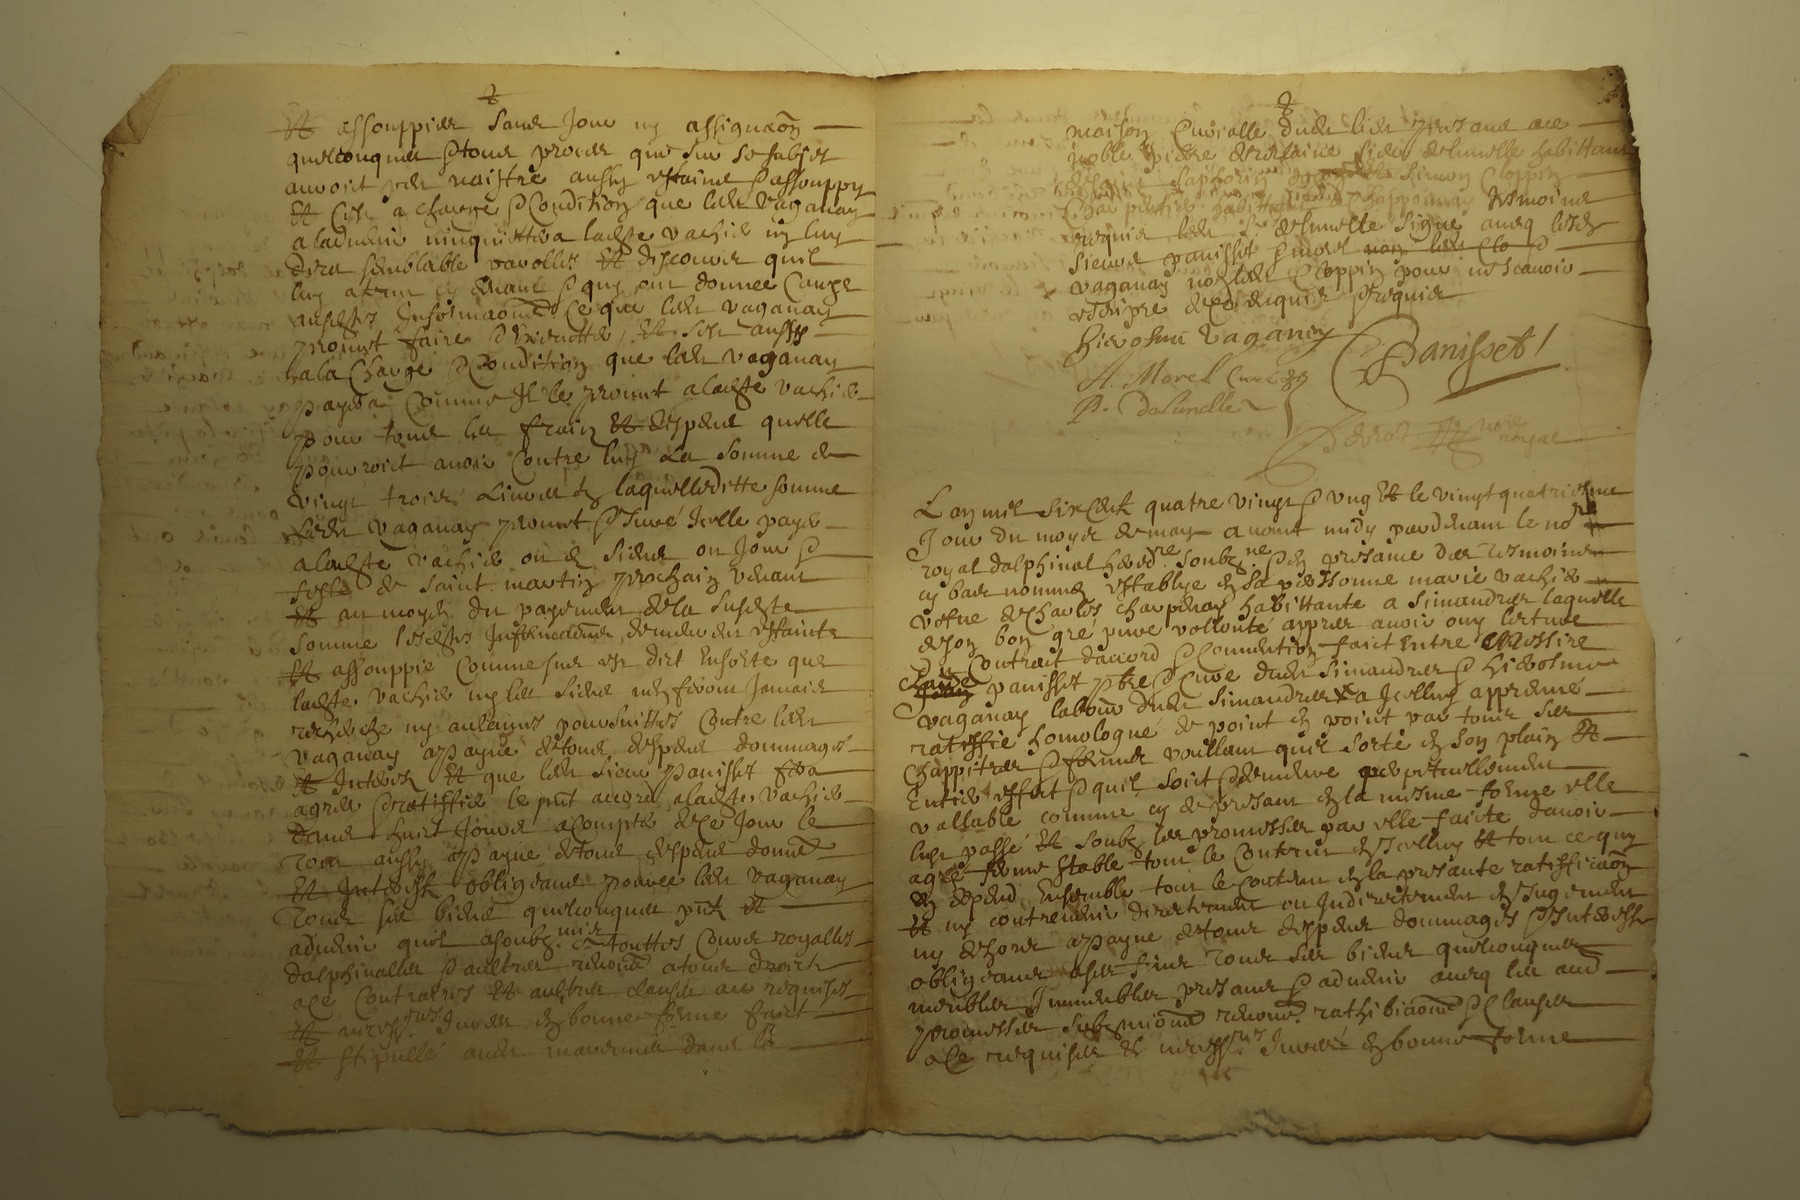 Et assouppies sans jour ny assignaon
quelconques & tous proces qui sur se subjet
auroit peu naistre aussy estaints & assouppy
Et cest a charge & condition que ledt vaganay
aladuenir ninquiettera ladte vachier ny luy
dira semblable parolles Et discours quil
luy a
ausdtes Informaons Ce que ledt vaganay
promet faire
ala charge & condition que ledt vaganay
payera comme Il le promet a ladte vachier
pour tous les frais Et despens quelle
pourroict auoir contre luy La somme de
vingt trois Liures laquelleditte somme
Ledt vaganay promet & Juré Icelle payer
a ladte vachier ou es siens au Jour &
feste de saint martin prochain venant
Et au moyen du payement de la susdte
somme lesdtes Informations demeurent estaints
Et assouppie comme sus est dict Ensorte que
ladte vachier ny les siens nen feront Jamais
recherche ny aulcunes poursuittes contre ledt
vaganay a payne de tous despens dommages
Et Interests Et que ledt sieur panisset fera
agreer & ratiffier le pnt accord a ladte vachier
dans huict Jours a compter de ce Jour le
tout aussy a payne de tous despens domma
Et Interests obligeans pource ledt vaganay
tous ses biens quelconques pnts Et
aduenir quil a soubzmis a touttes cours royalles
dalphinalles & aultres renoncé a tous droicts
a ce contraires Et aultres clauses a ce requises
Et necessres Jurées en bonne forme faict
Et stipullé audt dans la
maison curialle dudt lieu presants a ce
noble pierre sieur delunelle habittant
Simon Cloppin
Charpentier habittant tesmoins
requis ledt sr delunelle signé aueq lesdts
sieurs panisset & morel
vaganay non ledt Cloppin pour ne scauoir
escripre de ce enquis & requis
Hierosme Vaganay Panisset
A. Morel Curé
P. deLunelle
nore royal
L an mil six cents quatre vingt & ung Et le vingtquatriesme
Jour du moys de may auant midy pardeuant le nore
royal dalphinal hered. re soubzne & en presance des tesmoins
cy bas nommez establye en sa personne marie vachier
vefue de charles charpenay habittante a simandres laquelle
de son bon gré pure vollonté appres auoir ouy lecture
du contract daccord & conuention faict Entre Messire
Claude panisset ptre & curé dudt simandres & hierosme
vaganay labour dudt simandres a Icelluy appreuué
ratiffié homologué de point en point par tous ses
chappitres & fermes voullant quil sorte en son plain Et
Entier effect & quil soict & demeure perpetuellement
vallable comme sy de presant en la mesme forme elle
lust passé Et soubz les promesses par elle faicte dauoir
agré ferme stable tout le contenu en Icelluy Et tout ce quy
en depend Ensemble tout le contenu en la presante ratifficaon
Et ny contreuenir directement ou Indirectement en Jugement
ny dehors a payne de tous despens dommages & Interests
obligeans a ses fins tous ses biens quelconques
meubles Immeubles presans & aduenir aueq les aues
promesses submions renons rathibicaons & clauses
a ce requises & necessres Jurée en bonne forme